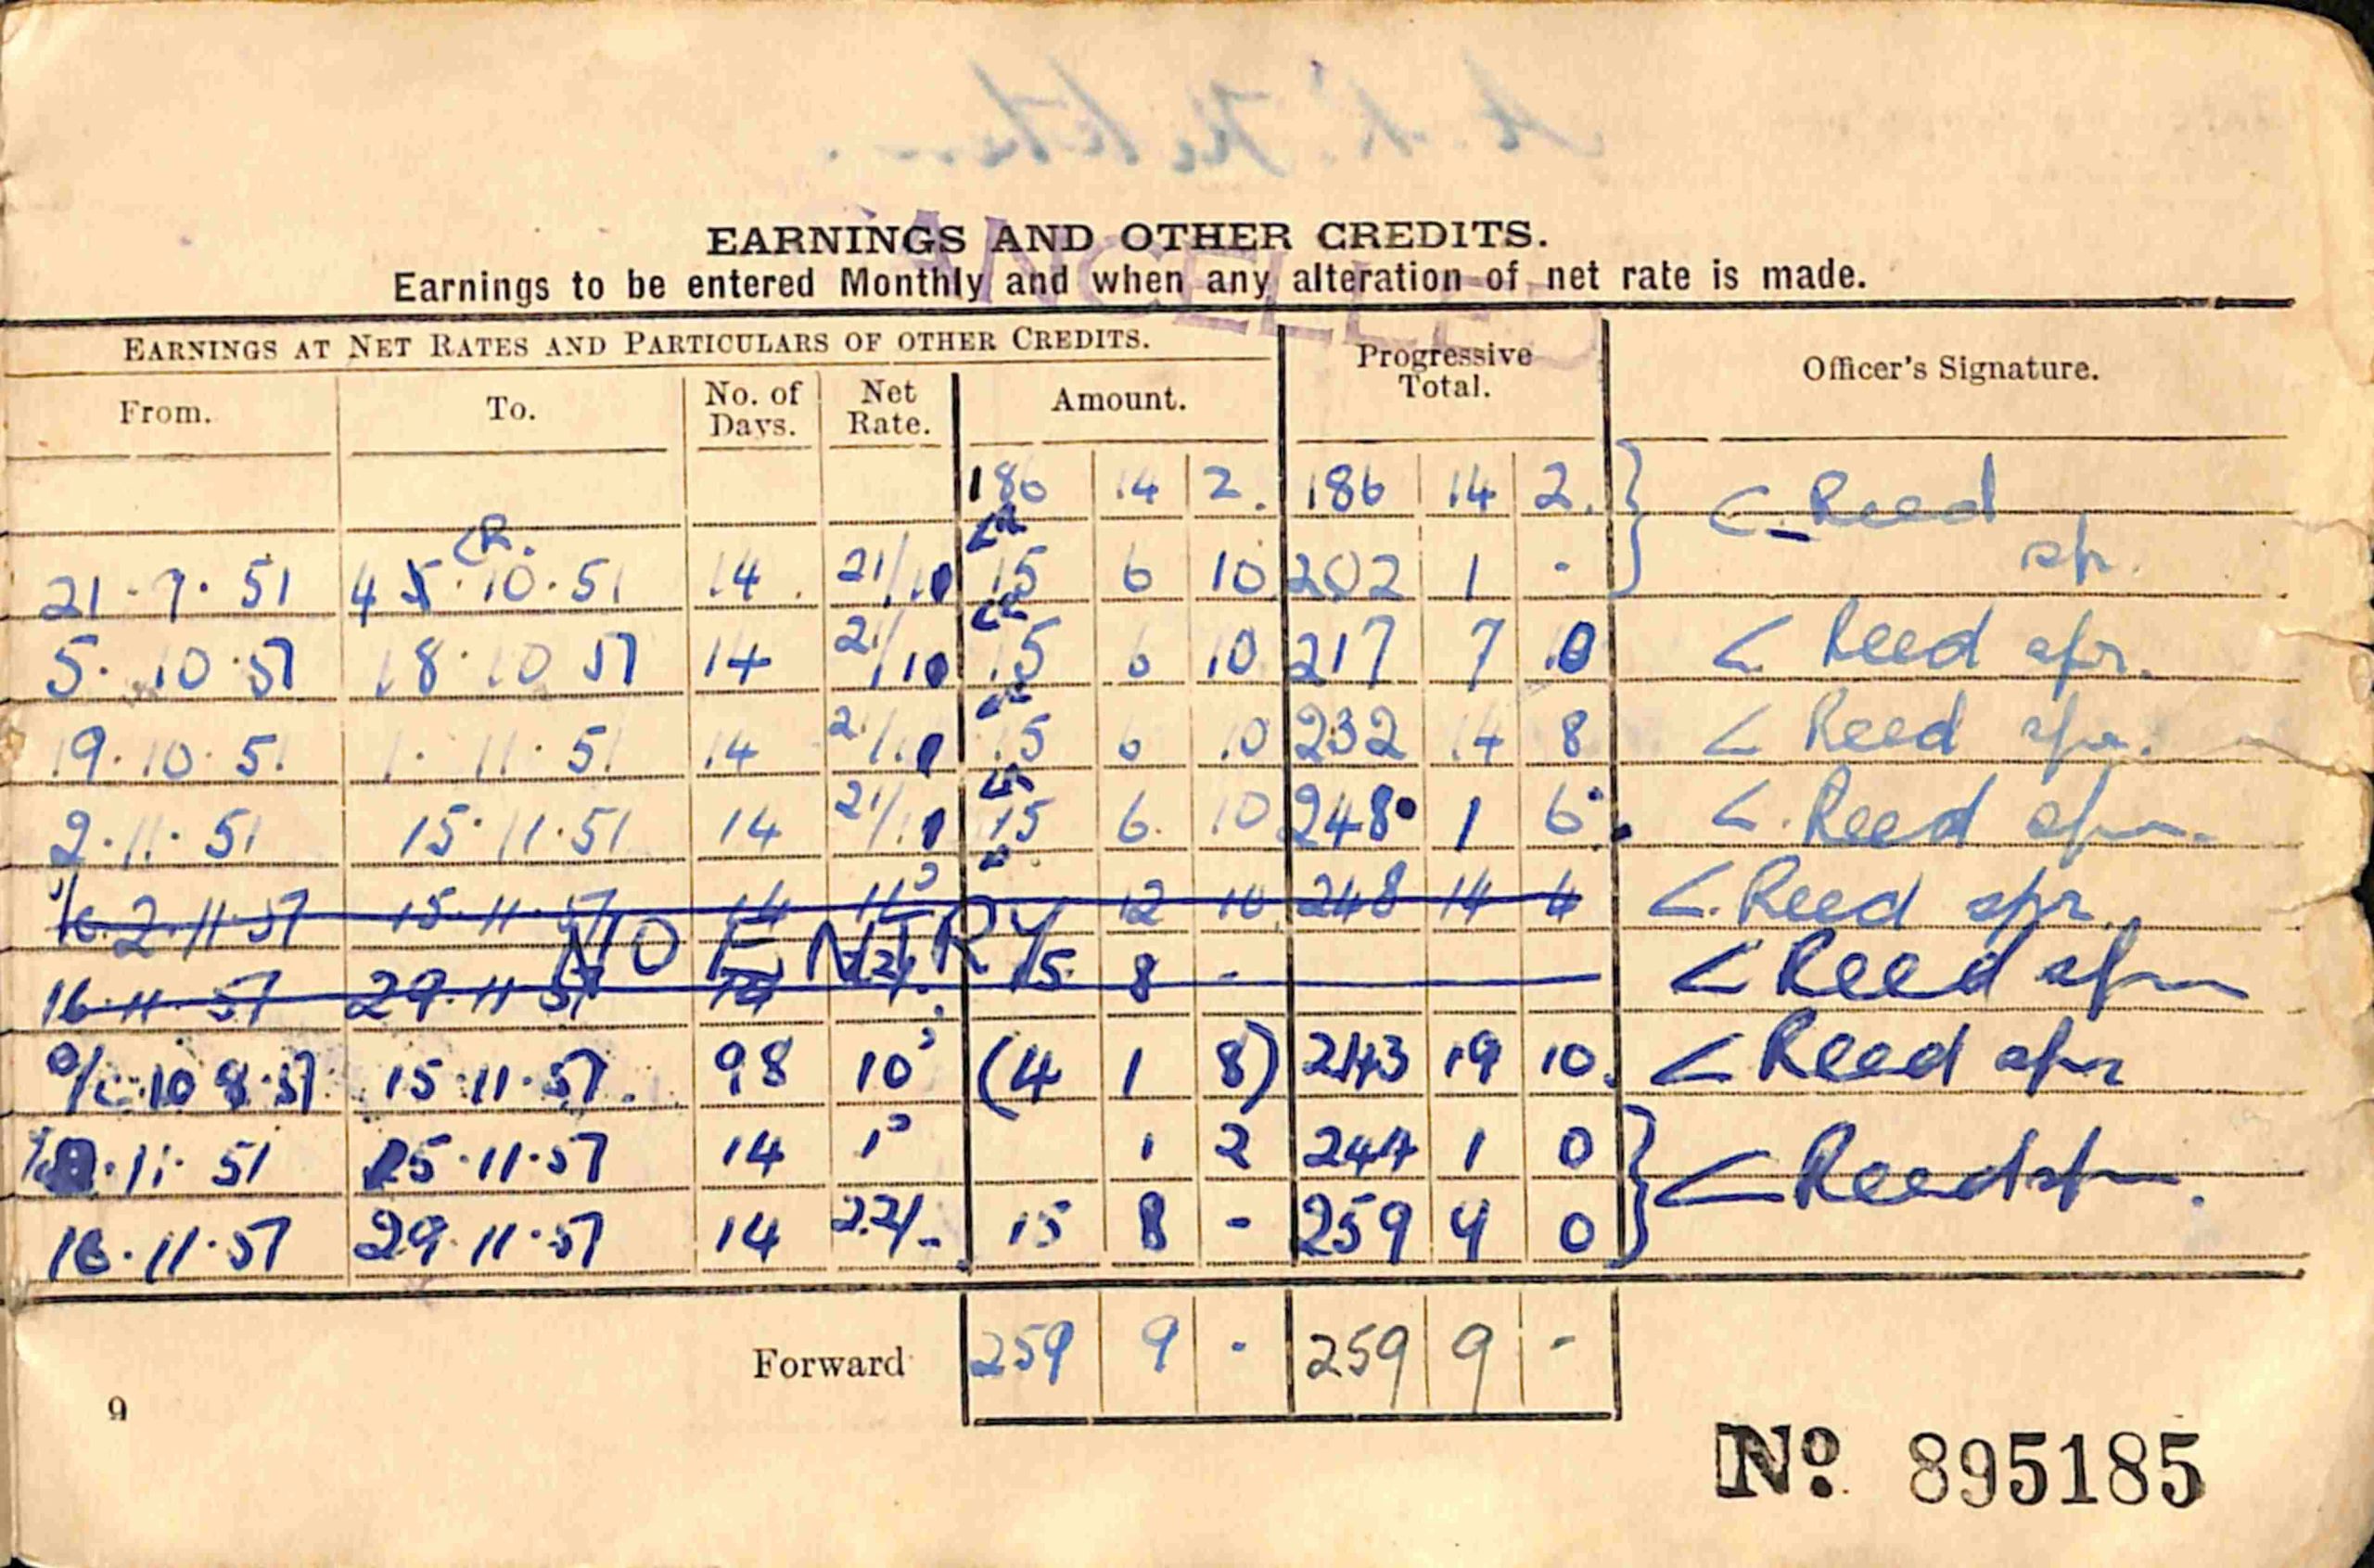 EARNINGS AND OTHER CREDITS.
Earnings to be entered Monthly and when any alteration of net rate is made.
EARNINGS AT NET RATES AND PARTICULARS OF OTHER CREDITS.
Progressive Total.
Officer's Signature.
From. To. No. of Days. Net Rate. Amount.
186 14 2. 186 14 2. C. Reed
CR. spr.
21.9.51 4 5.10.51 14. 21/10 15 6 10 202 1 -
5.10.51 18.10 51 14 21/10 15 6 10 217 7 10 C Reed spr.
19.10.51 1.11.51 14 21/10 15 6 10 232 14 8 C Reed spr.
2.11.51 15.11.51 14 21/10 15 6. 10 248 1 6. C. Reed spr.
2.11.51 15.11.51 14 11 12 10 248 14 4 C. Reed spr.
NO ENTRY
16.11.51 29.11.51 14 22/- 15 8 - C Reed spr
10 8.51 15.11.51. 98 10 (4 1 8) 243 19 10. C Reed spr
11.51 15.11.51 14 1 1 2 244 1 0 C Reed spr.
16.11.51 29.11.51 14 22/- 15 8 - 259 9 0
Forward 259 9 - 259 9 -
9
No. 895185